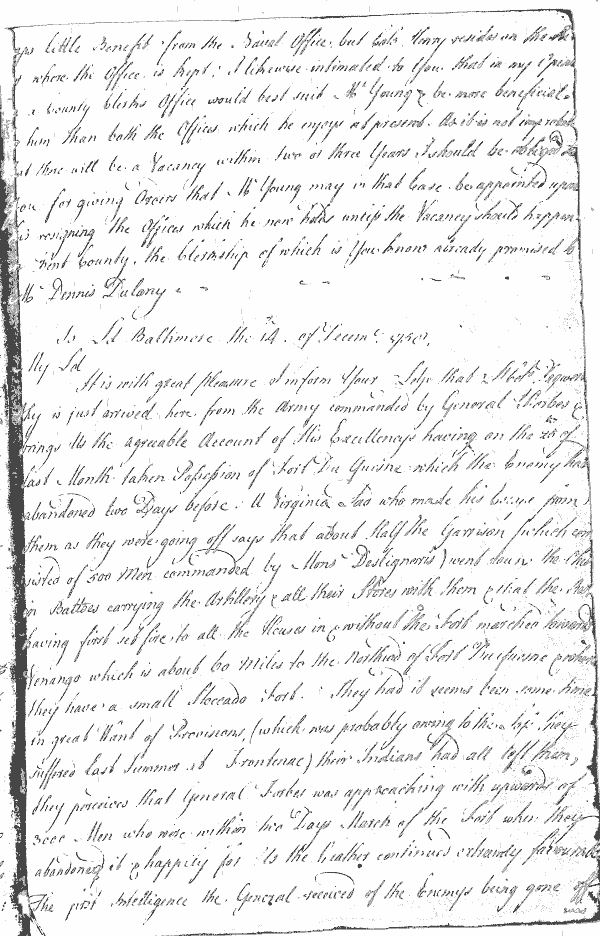 little Benefit from the Naval Office, but Colo. Henry resides on the
where the Office is kept; I likewise intimated to You that in my Opinion
a County Clerks Office would best suit Mr. Young & be more beneficial
him than both the Offices which he enjoys at present. As it is not improbable
that there will be a Vacancy within two or three Years I should be obliged to
You for giving Orders that Mr. Young may in that Case be appointed upon
his resigning the Offices which he now holds unless the Vacancy should happen
Kent County, the Clerkship of which is You know already promised to
Mr. Dennis Dulany
To Ld Baltimore the 14 of Decemr. 1758.
My Ld
It is with great pleasure I inform Your Ldp that
is just arrived here from the Army commanded by General Forbes &
brings Us the agreeable Account of His Excellencys having on the 25 of
last Month taken Possession of Fort Du Quesne which the Enemy had
abandoned two Days before. A Virginia Lad who made his Escape from
them as they were going off says that about Half the Garrison (which con
sisted of 500 Men commanded by Monsr ) went down the Ohio
in Battoes carrying the Artillery & all their Stores with them & that the Rest
having first set fire to all the Houses in & without the Fort marched towards
Venango which is about 60 Miles to the Northwd of Fort Du Quesne & where
they have a small Stoccado Fort. They had it seems been some time
in great Want of Provisions, (which was probably owing to the Loss they
suffered last Summer at Frontenac) their Indians had all left them,
they perceived that General Forbes was approaching with upwards of
3000 Men who were within two Days March of the Fort when they
abandoned it & happily for Us the Weather continued extremely favourable
The first Intelligence the General received of the Enemys being gone off
was